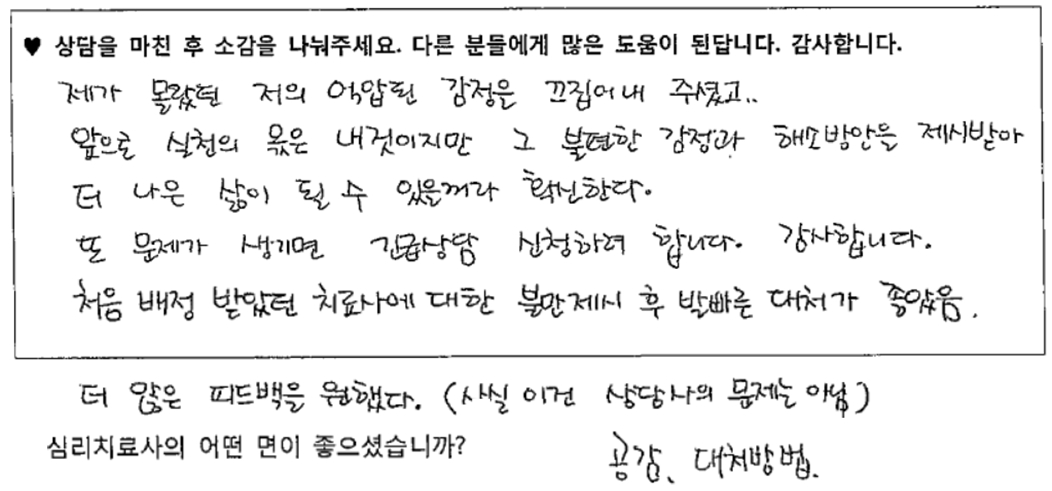 ♥ 상담을 마친 후 소감을 나눠주세요. 다른 분들에게 많은 도움이 된답니다. 감사합니다.
제가 몰랐던 저의 억압된 감정을 끄집어내 주셨고..
앞으로 실천의 몫은 내것이지만 그 불편한 감정과 해소방안을 제시받아
더 나은 삶이 될 수 있을꺼라 확신한다.
또 문제가 생기면 긴급상담 신청하려 합니다. 감사합니다.
처음 배정 받았던 치료사에 대한 불만제시 후 발빠른 대처가 좋았음.
더 많은 피드백을 원했다. (사실 이건 상담사의 문제는 아님)
심리치료사의 어떤 면이 좋으셨습니까?
공감, 대처방법.